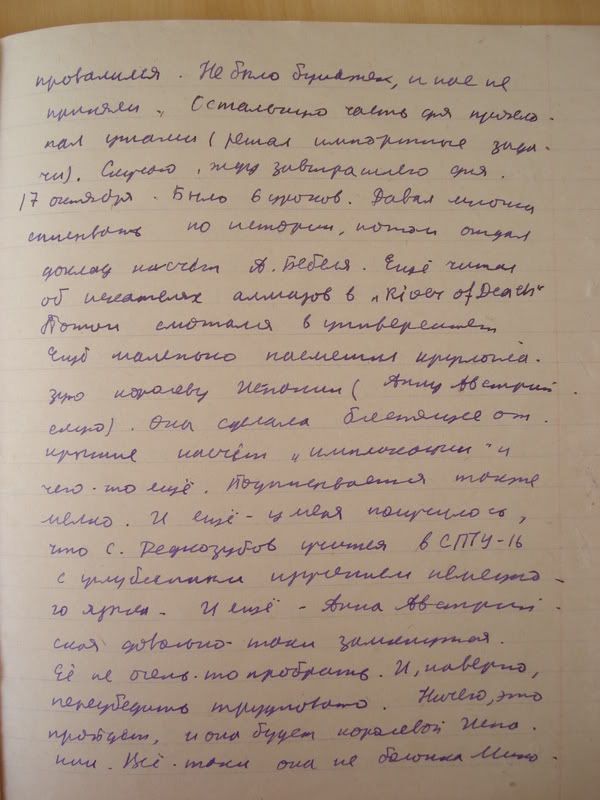 провалился. Не было бумажек, и нас не
приняли. Остальную часть дня прохло-
пал ушами (решал импортные зада-
чи). Скучаю, жду завтрашнего дня.
17 октября. Было 6 уроков. Давал многим
списывать по истории, потом отдал
доклад насчёт А. Бебеля. Ещё читал
об искателях алмазов в „River of Death"
Потом смотался в университет
Ещё маленько насмешил круглогла-
зую королеву Испании (Анну Австрий-
скую). Она сделала блестящее от-
крытие насчёт „импликации" и
чего-то ещё. Подписывается также
мелко. И ещё - у меня получилось,
что С. Редкозубов учится в СПТУ-16
с углубленным изучением немецко-
го языка. И ещё - Анна Австрий-
ская довольно-таки замкнутая.
Её не очень-то пробрать. И, наверно,
переубедить трудновато. Ничего, это
пройдет, и она будет королевой Испа-
нии. Всё-таки она не болонка